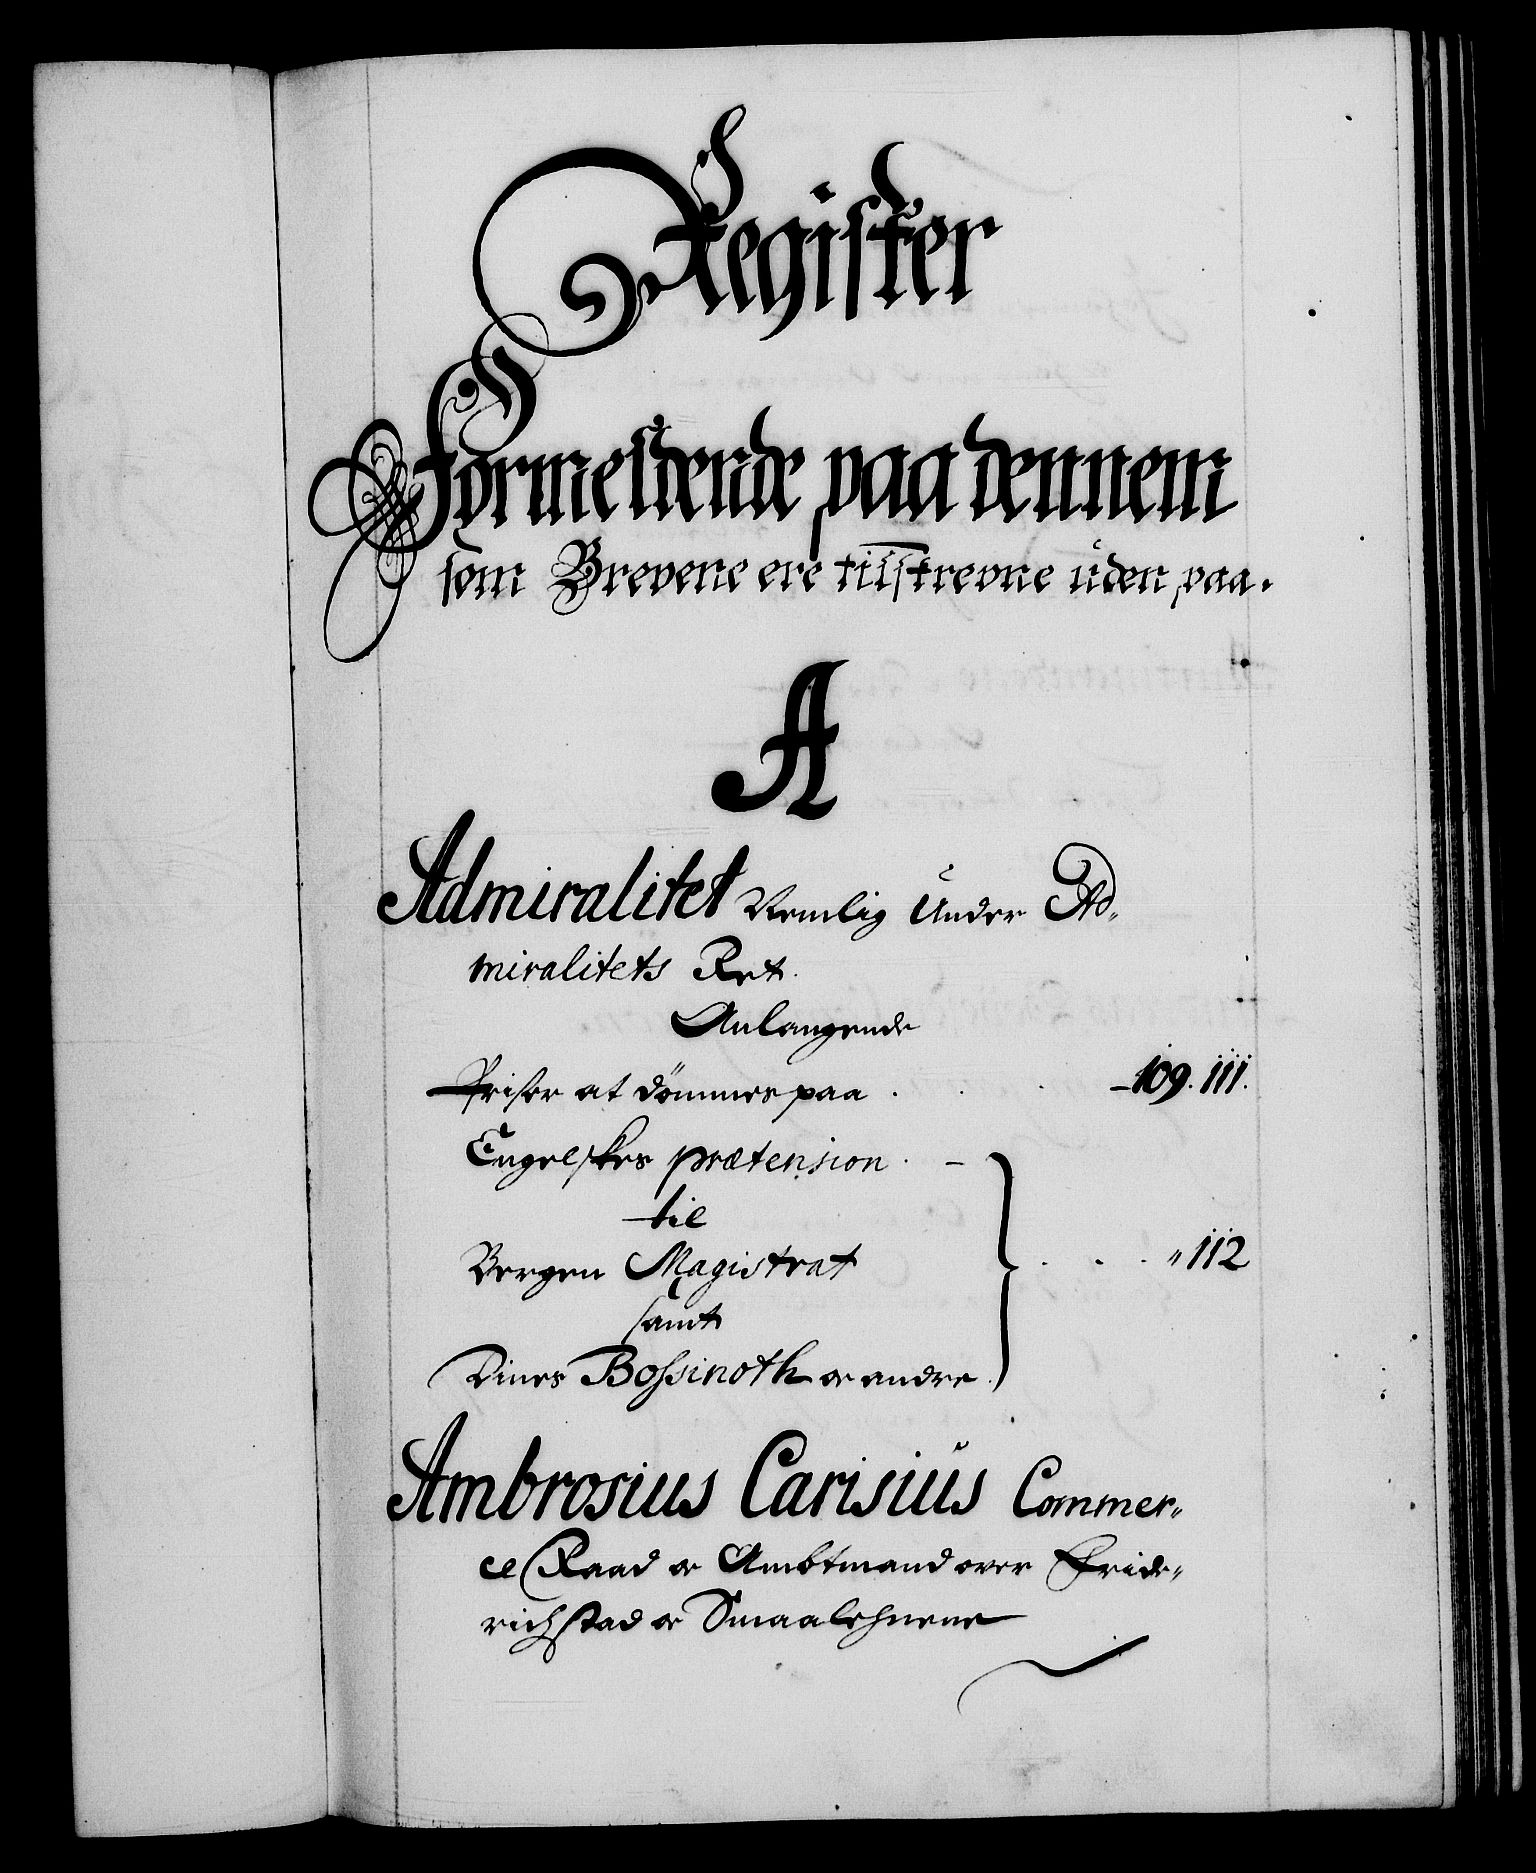 Register
Formeldende paa dennem
som Brevene ere tilskrevne uden paa.
A
Admiralitet Nemlig Under Ad„
miralitets Ret.
Anlangende
Priser at dömmes paa . . . 109. 111.
Engelskes prætension . –
til
Bergen Magistrat . . . „ 112
samt
Dines Bossinoth og andre.
Ambrosius Carisius Commer„
ce Raad og Ambtmand over Fride„
richstad og Smaalehnene